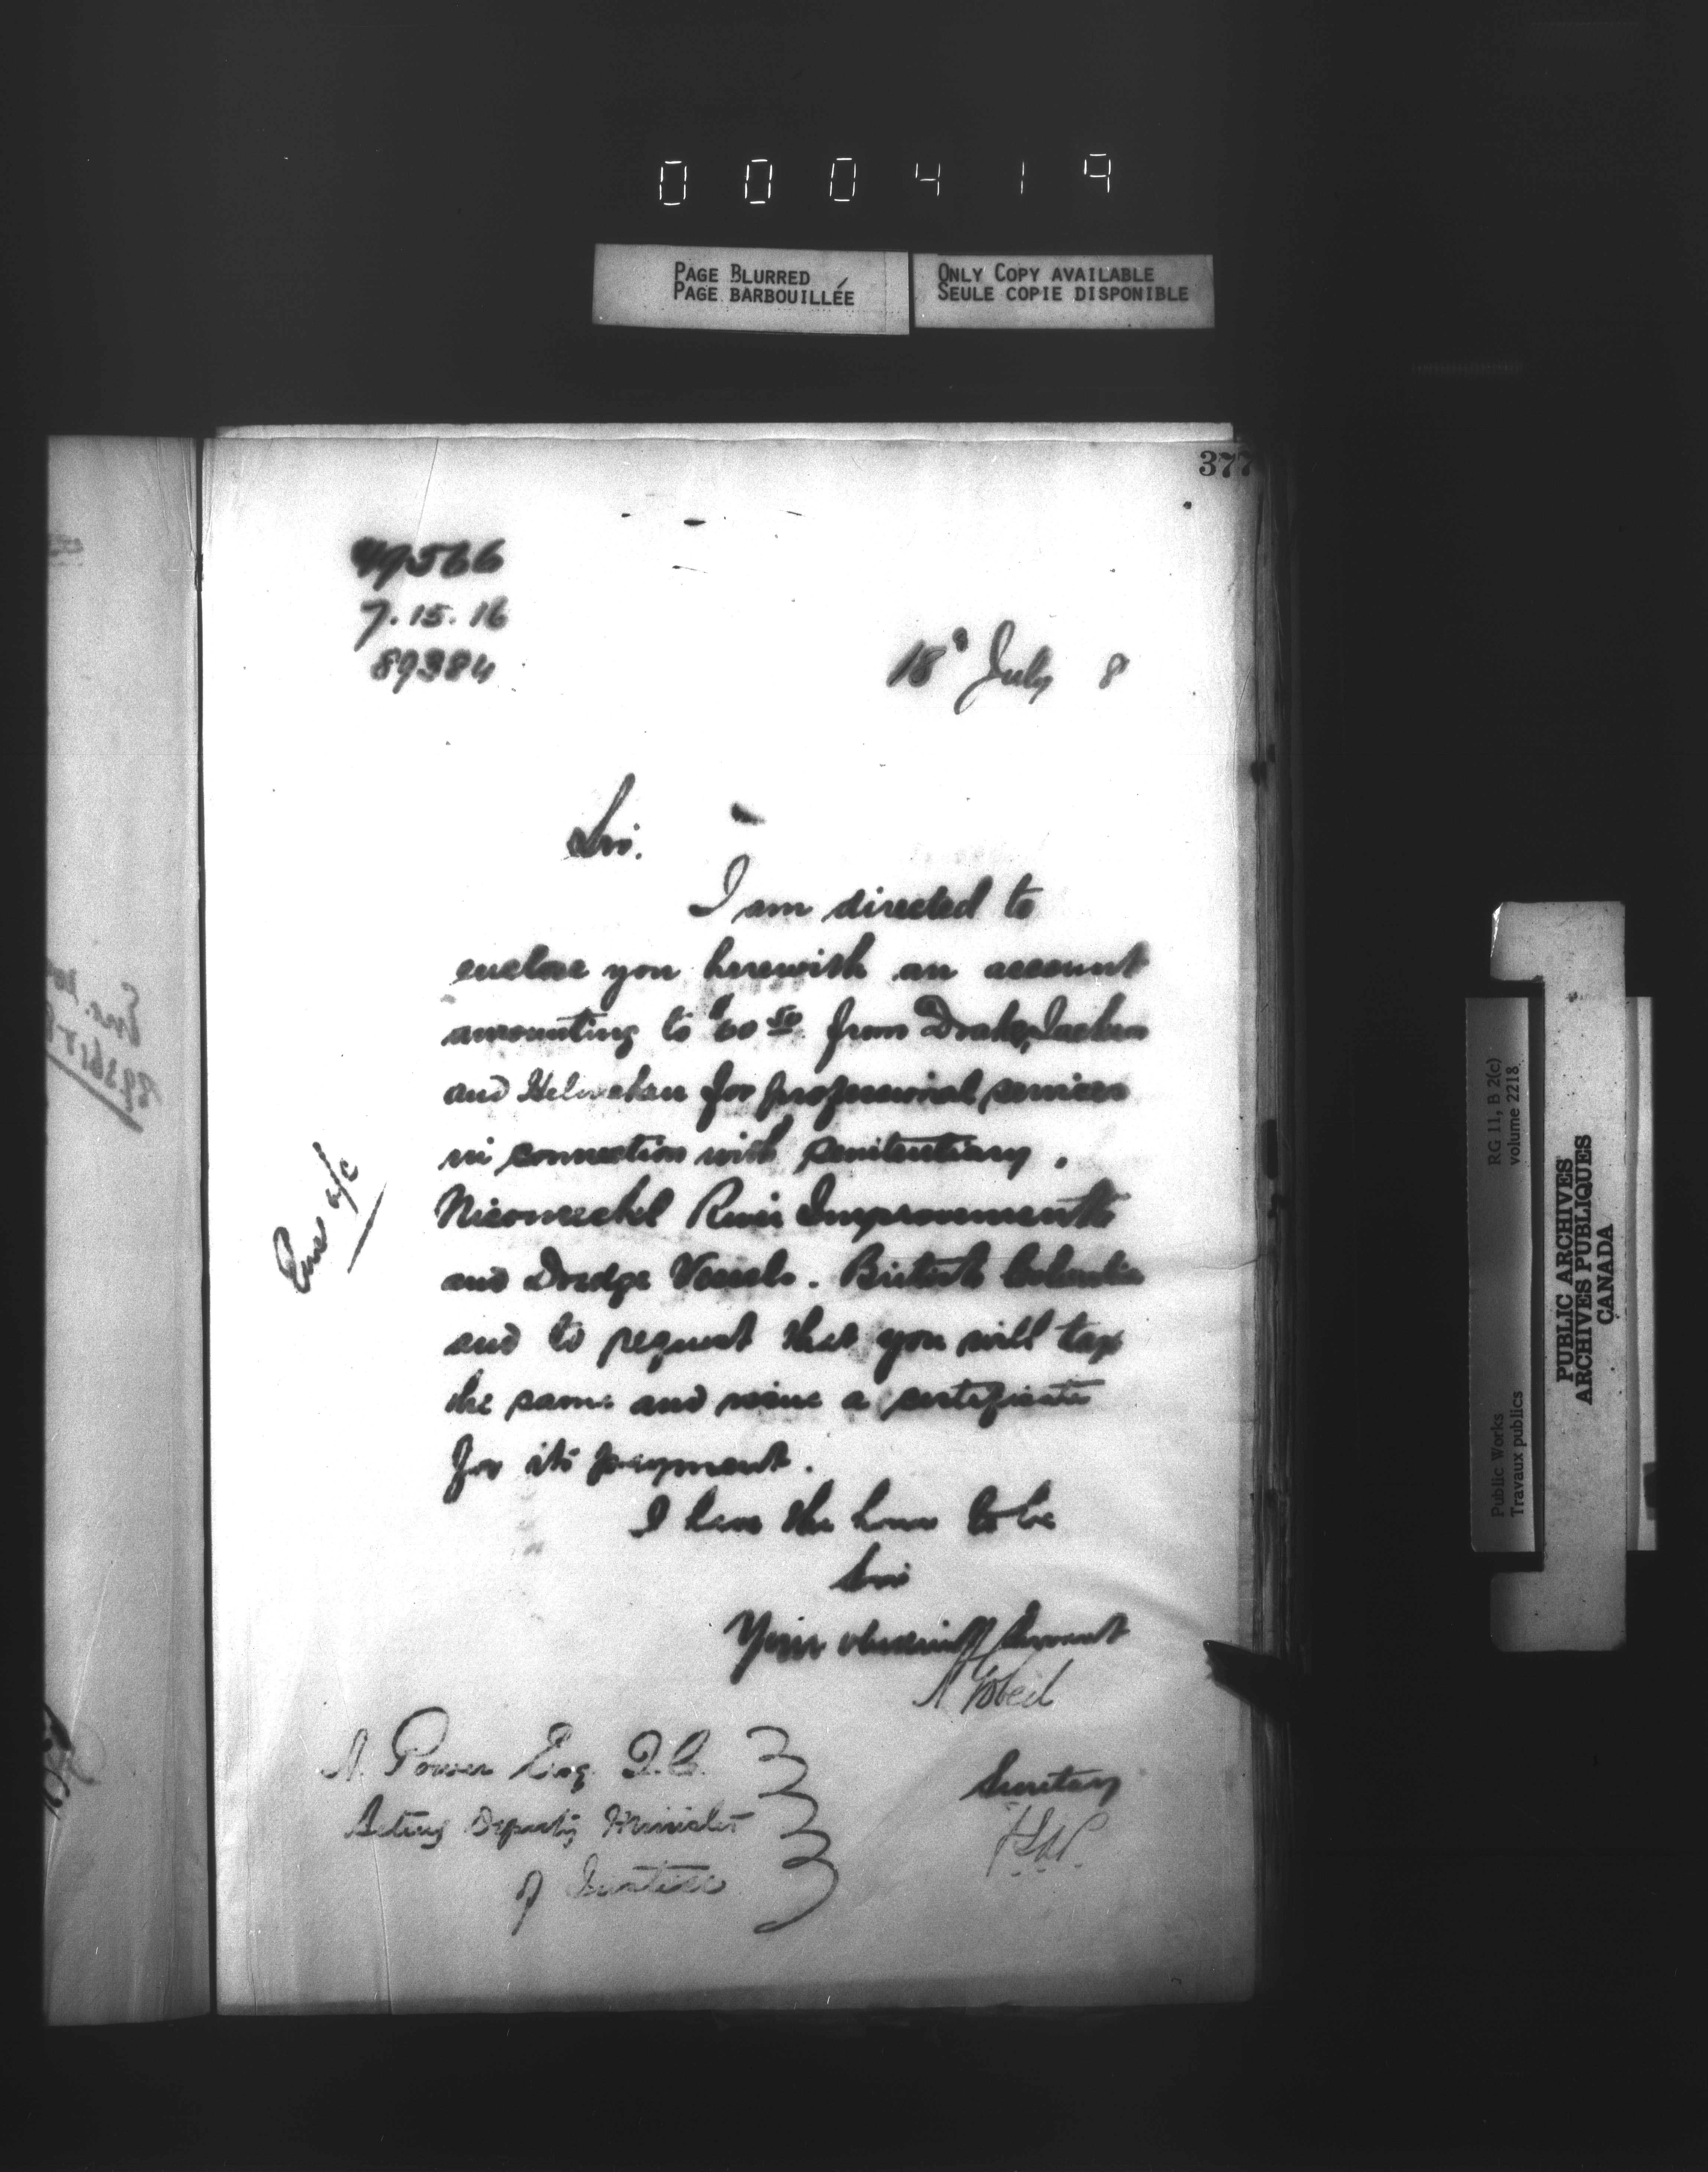 000419
PAGE BLURRED
PAGE BARBOUILLÉE
ONLY COPY AVAILABLE
SEULE COPIE DISPONIBLE
377
49566
7.15.16
89384
18° July 8
Sir.
I am directed to
enclose you herewith an account
amounting to $60 50 from Drake, Jackson
and Helmcken for professional services
in connection with Penitentiary.
River Improvements
and Dredge Vessels. British Columbia
and to request that you will tax
the same and issue a certificate
for its payment.
I have the honor to be
Sir
Your obedient Servant
A Gobeil
Secretary
A. Power Esq. Q.C.
Acting Deputy Minister
of Justice
Enc a/c
RG 11, B 2(c)
volume 2218
Public Works
Travaux publics
PUBLIC ARCHIVES
ARCHIVES PUBLIQUES
CANADA